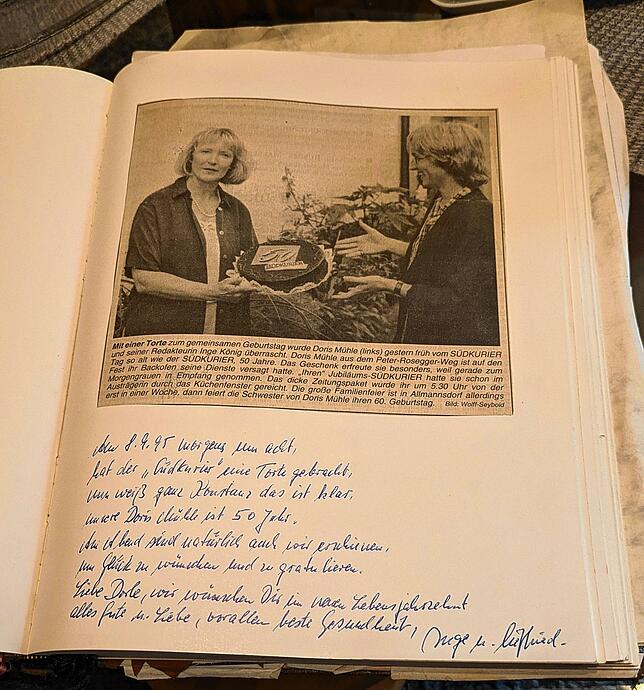 50
SÜDKURIER
Mit einer Torte zum gemeinsamen Geburtstag wurde Doris Mühle (links) gestern früh vom SÜDKURIER
und seiner Redakteurin Inge König überrascht. Doris Mühle aus dem Peter-Rosegger-Weg ist auf den
Tag so alt wie der SÜDKURIER, 50 Jahre. Das Geschenk erfreute sie besonders, weil gerade zum
Fest ihr Backofen seine Dienste versagt hatte. „Ihren" Jubiläums-SÜDKURIER hatte sie schon im
Morgengrauen in Empfang genommen. Das dicke Zeitungspaket wurde ihr um 5.30 Uhr von der
Austrägerin durch das Küchenfenster gereicht. Die große Familienfeier ist in Allmannsdorf allerdings
erst in einer Woche, dann feiert die Schwester von Doris Mühle ihren 60. Geburtstag. Bild: Wolff-Seybold
Am 8.9.95 morgens um acht,
hat der „Südkurier" eine Torte gebracht,
nun weiß ganz Konstanz das ist klar,
unsere Doris Mühle ist 50 Jahr.
Am Abend sind natürlich auch wir erschienen,
um Glück zu wünschen und zu gratulieren.
Liebe Dorle, wir wünschen Dir im neuen Lebensjahrzehnt
alles Gute u. Liebe, vorallem beste Gesundheit,
Inge u.